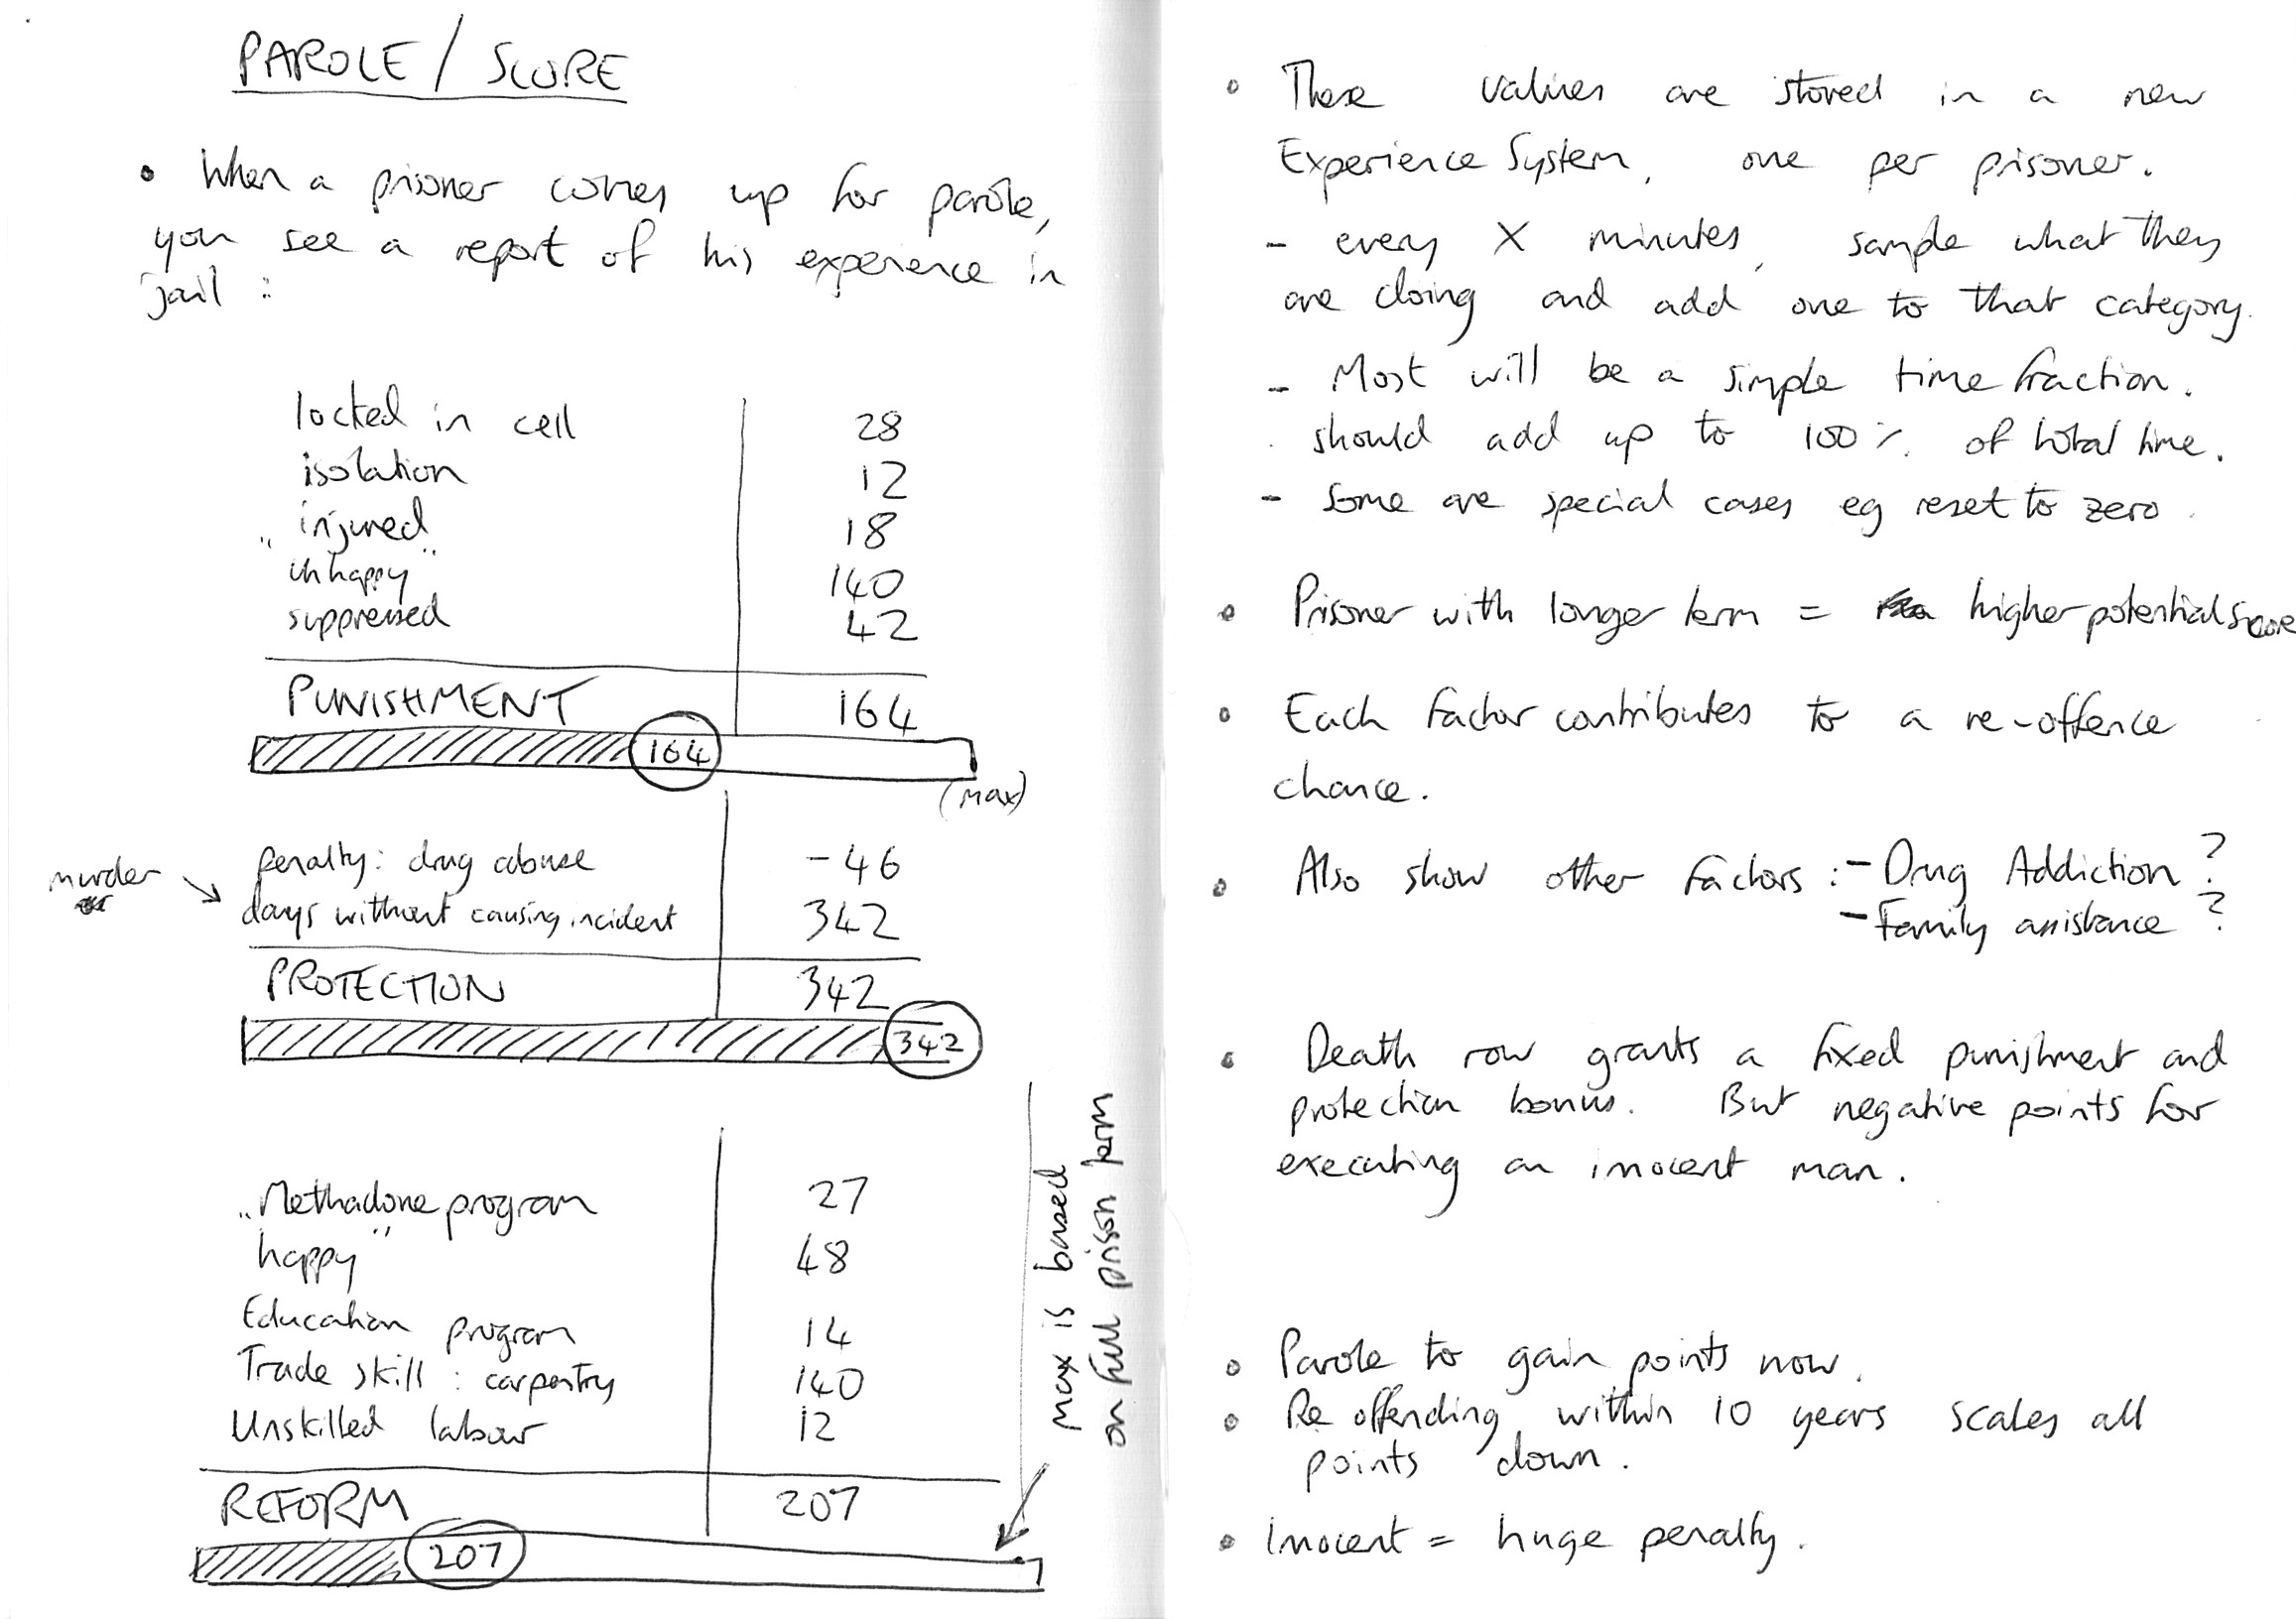 PAROLE / SCORE
• When a prisoner comes up for parole,
you see a report of his experience in
jail :
locked in cell 28
isolation 12
injured 18
"unhappy" 140
suppressed 42
PUNISHMENT 164
164
(max)
murder
penalty: drug abuse -46
days without causing incident 342
PROTECTION 342
342
"Methadone program 27
happy" 48
Education program 14
Trade skill : carpentry 140
Unskilled labour 12
REFORM 207
207
max is based
on full prison term
• These values are stored in a new
Experience System, one per prisoner.
- every X minutes, sample what they
are doing and add one to that category.
- Most will be a simple time fraction.
should add up to 100% of total time.
- Some are special cases eg reset to zero.
• Prisoner with longer term = higher potential score
• Each factor contributes to a re-offence
chance.
• Also show other factors : - Drug Addiction ?
- Family assistance ?
• Death row grants a fixed punishment and
protection bonus. But negative points for
executing an inocent man.
• Parole to gain points now.
• Re offending within 10 years scales all
points down.
• Inocent = huge penalty.